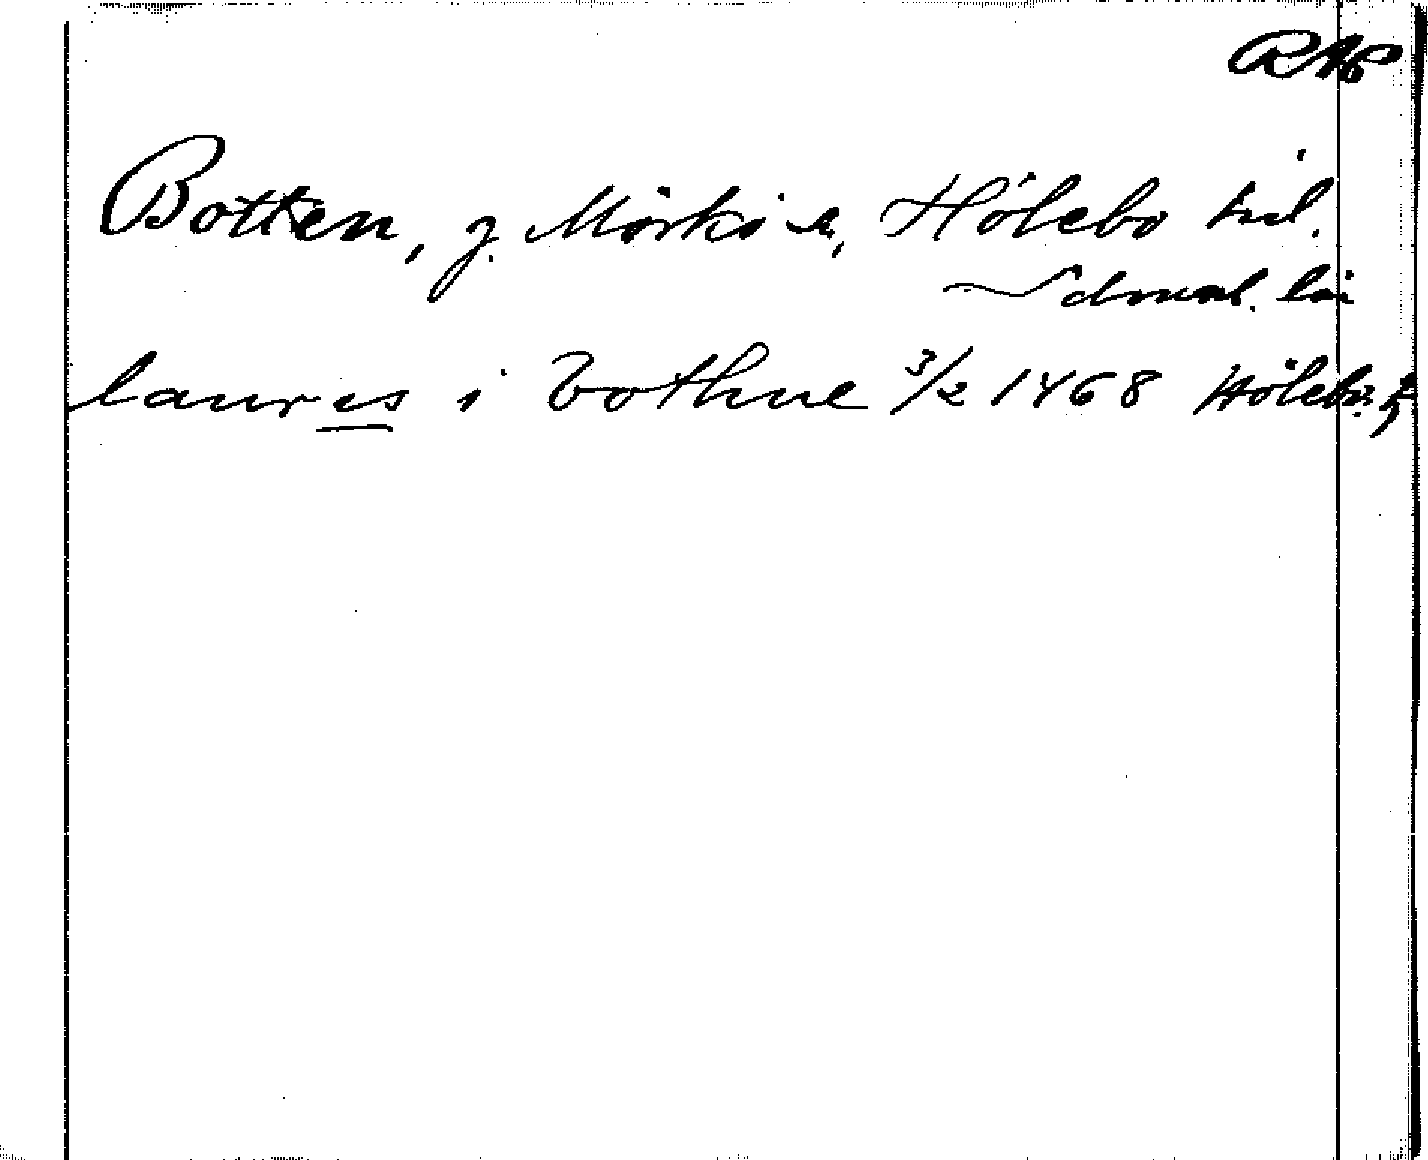 RAP
Botten, g. Mörkö sn, Hölebo hd.
Södmanl. län
laur es i bothne 3/2 1468 Hölebo